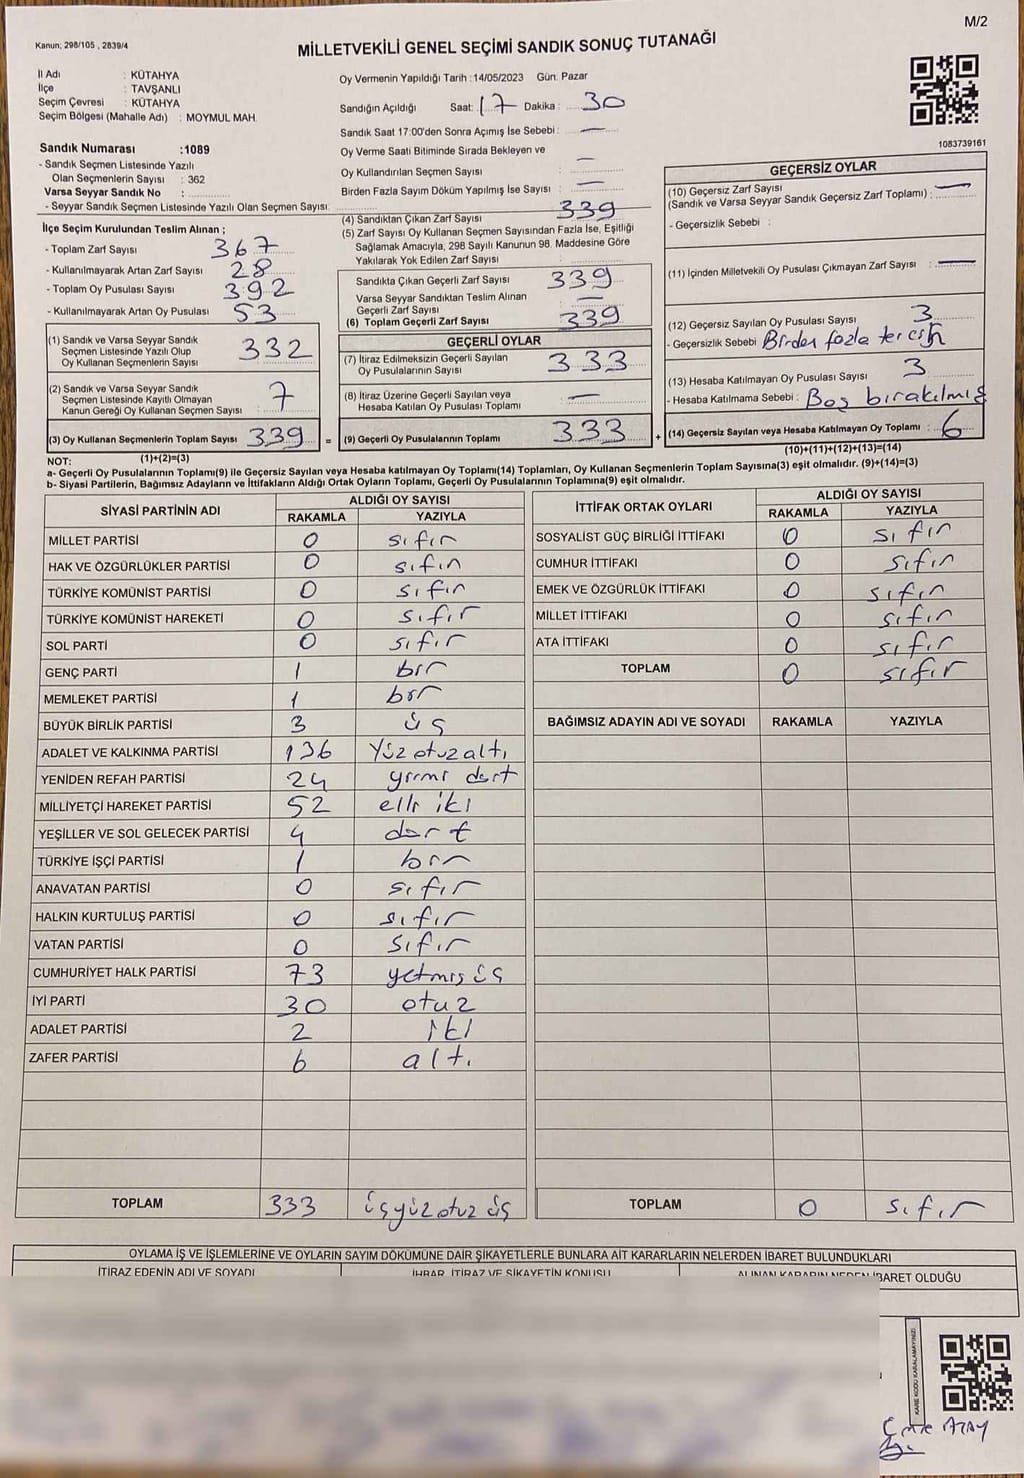 M/2
Kanun; 298/105 , 2839/4
MİLLETVEKİLİ GENEL SEÇİMİ SANDIK SONUÇ TUTANAĞI
İl Adı : KÜTAHYA
İlçe : TAVŞANLI
Seçim Çevresi : KÜTAHYA
Seçim Bölgesi (Mahalle Adı) : MOYMUL MAH.
Oy Vermenin Yapıldığı Tarih :14/05/2023 Gün: Pazar
Sandığın Açıldığı Saat: 17 Dakika : 30
Sandık Saat 17:00'den Sonra Açımış İse Sebebi : —
Oy Verme Saati Bitiminde Sırada Bekleyen ve
Oy Kullandırılan Seçmen Sayısı : —
Birden Fazla Sayım Döküm Yapılmış İse Sayısı : —
1083739161
Sandık Numarası :1089
- Sandık Seçmen Listesinde Yazılı
Olan Seçmenlerin Sayısı : 362
Varsa Seyyar Sandık No :
- Seyyar Sandık Seçmen Listesinde Yazılı Olan Seçmen Sayısı:
İlçe Seçim Kurulundan Teslim Alınan ;
- Toplam Zarf Sayısı 367
- Kullanılmayarak Artan Zarf Sayısı 28
- Toplam Oy Pusulası Sayısı 392
- Kullanılmayarak Artan Oy Pusulası 53
(1) Sandık ve Varsa Seyyar Sandık
Seçmen Listesinde Yazılı Olup
Oy Kullanan Seçmenlerin Sayısı 332
(2) Sandık ve Varsa Seyyar Sandık
Seçmen Listesinde Kayıtlı Olmayan
Kanun Gereği Oy Kullanan Seçmen Sayısı 7
(3) Oy Kullanan Seçmenlerin Toplam Sayısı 339 =
(4) Sandıktan Çıkan Zarf Sayısı 339
(5) Zarf Sayısı Oy Kullanan Seçmen Sayısından Fazla İse, Eşitliği
Sağlamak Amacıyla, 298 Sayılı Kanunun 98. Maddesine Göre
Yakılarak Yok Edilen Zarf Sayısı
Sandıkta Çıkan Geçerli Zarf Sayısı 339
Varsa Seyyar Sandıktan Teslim Alınan
Geçerli Zarf Sayısı —
(6) Toplam Geçerli Zarf Sayısı 339
GEÇERLİ OYLAR
(7) İtiraz Edilmeksizin Geçerli Sayılan
Oy Pusulalarının Sayısı 333
(8) İtiraz Üzerine Geçerli Sayılan veya
Hesaba Katılan Oy Pusulası Toplamı —
(9) Geçerli Oy Pusulalarının Toplamı 333 +
GEÇERSİZ OYLAR
(10) Geçersiz Zarf Sayısı —
(Sandık ve Varsa Seyyar Sandık Geçersiz Zarf Toplamı) :
- Geçersizlik Sebebi :
(11) İçinden Milletvekili Oy Pusulası Çıkmayan Zarf Sayısı : —
(12) Geçersiz Sayılan Oy Pusulası Sayısı : 3
- Geçersizlik Sebebi : Birden fazla tercih
(13) Hesaba Katılmayan Oy Pusulası Sayısı 3
- Hesaba Katılmama Sebebi : Boş bırakılmış
(14) Geçersiz Sayılan veya Hesaba Katılmayan Oy Toplamı : 6
NOT: (1)+(2)=(3) (10)+(11)+(12)+(13)=(14)
a- Geçerli Oy Pusulalarının Toplamı(9) ile Geçersiz Sayılan veya Hesaba katılmayan Oy Toplamı(14) Toplamları, Oy Kullanan Seçmenlerin Toplam Sayısına(3) eşit olmalıdır. (9)+(14)=(3)
b- Siyasi Partilerin, Bağımsız Adayların ve İttifakların Aldığı Ortak Oyların Toplamı, Geçerli Oy Pusulalarının Toplamına(9) eşit olmalıdır.
SİYASİ PARTİNİN ADI ALDIĞI OY SAYISI
RAKAMLA YAZIYLA
MİLLET PARTİSİ 0 sıfır
HAK VE ÖZGÜRLÜKLER PARTİSİ 0 sıfır
TÜRKİYE KOMÜNİST PARTİSİ 0 sıfır
TÜRKİYE KOMÜNİST HAREKETİ 0 sıfır
SOL PARTİ 0 sıfır
GENÇ PARTİ 1 bir
MEMLEKET PARTİSİ 1 bir
BÜYÜK BİRLİK PARTİSİ 3 üç
ADALET VE KALKINMA PARTİSİ 136 Yüz otuz altı
YENİDEN REFAH PARTİSİ 24 yirmi dört
MİLLİYETÇİ HAREKET PARTİSİ 52 elli iki
YEŞİLLER VE SOL GELECEK PARTİSİ 4 dört
TÜRKİYE İŞÇİ PARTİSİ 1 bir
ANAVATAN PARTİSİ 0 sıfır
HALKIN KURTULUŞ PARTİSİ 0 sıfır
VATAN PARTİSİ 0 sıfır
CUMHURİYET HALK PARTİSİ 73 yetmiş üç
İYİ PARTİ 30 otuz
ADALET PARTİSİ 2 iki
ZAFER PARTİSİ 6 altı
TOPLAM 333 üçyüz otuz üç
İTTİFAK ORTAK OYLARI ALDIĞI OY SAYISI
RAKAMLA YAZIYLA
SOSYALİST GÜÇ BİRLİĞİ İTTİFAKI 0 sıfır
CUMHUR İTTİFAKI 0 sıfır
EMEK VE ÖZGÜRLÜK İTTİFAKI 0 sıfır
MİLLET İTTİFAKI 0 sıfır
ATA İTTİFAKI 0 sıfır
TOPLAM 0 sıfır
BAĞIMSIZ ADAYIN ADI VE SOYADI RAKAMLA YAZIYLA
TOPLAM 0 sıfır
OYLAMA İŞ VE İŞLEMLERİNE VE OYLARIN SAYIM DÖKÜMÜNE DAİR ŞİKAYETLERLE BUNLARA AİT KARARLARIN NELERDEN İBARET BULUNDUKLARI
İTİRAZ EDENİN ADI VE SOYADI İHBAR, İTİRAZ VE ŞİKAYETİN KONUSU ALINAN KARARIN NEDEN İBARET OLDUĞU
KARE KODU KARALAMAYINIZ!